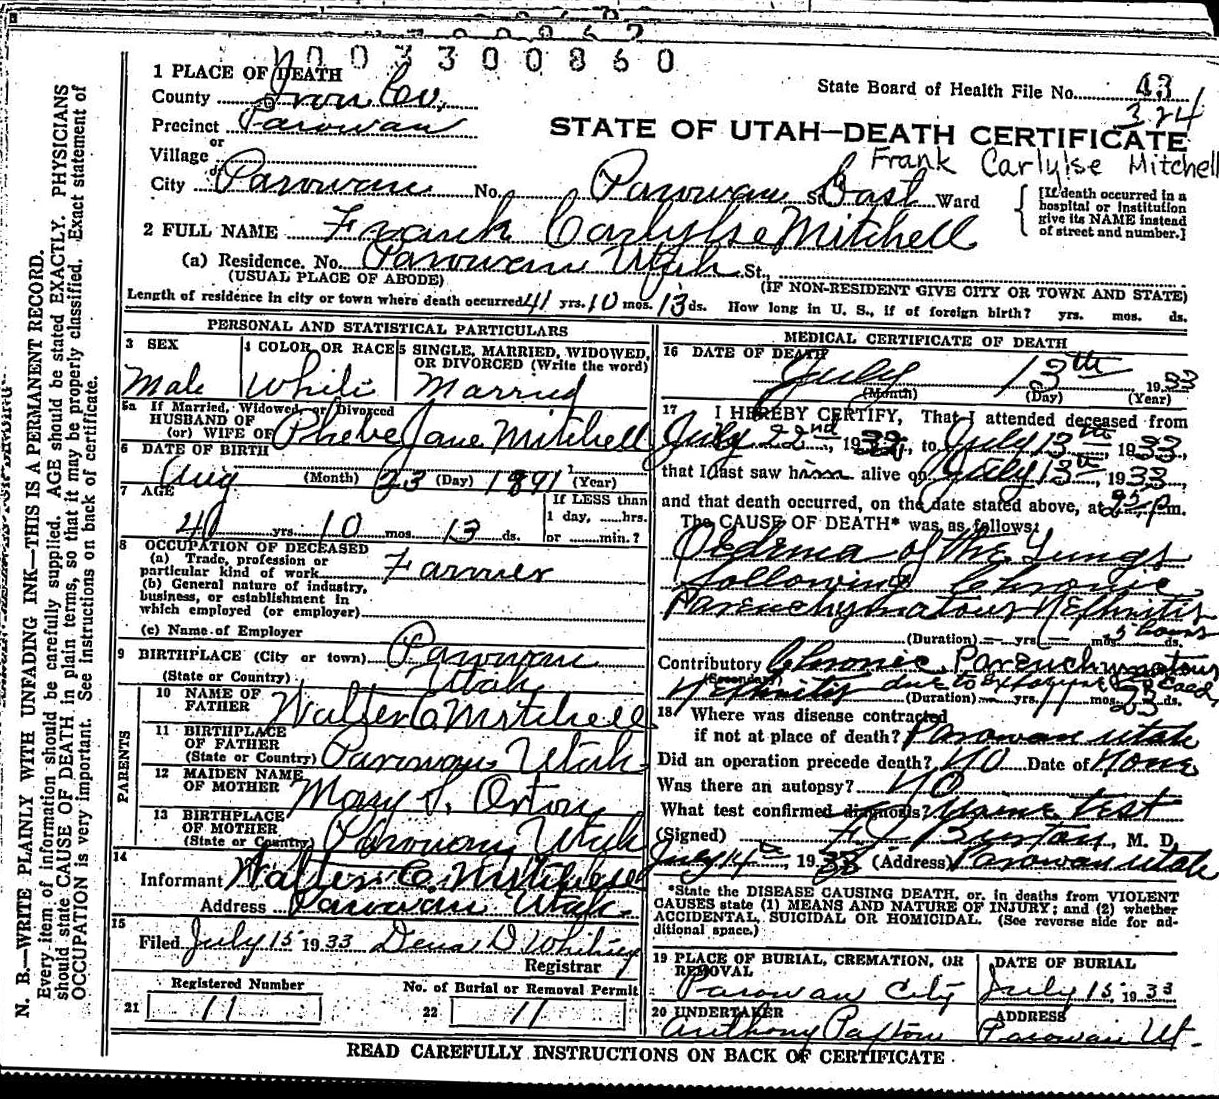 003300860
1 PLACE OF DEATH
County Iron Co.
State Board of Health File No. 43
324
Precinct Parowan
or
Village
or
STATE OF UTAH—DEATH CERTIFICATE
Frank Carlylse Mitchell
City Parowan No. Parowan St. East Ward
{ [If death occurred in a hospital or institution give its NAME instead of street and number.]
2 FULL NAME Frank Carlylse Mitchell
(a) Residence. No. Parowan Utah St.,
(USUAL PLACE OF ABODE) (IF NON-RESIDENT GIVE CITY OR TOWN AND STATE)
Length of residence in city or town where death occurred 41 yrs. 10 mos. 13 ds. How long in U. S., if of foreign birth? yrs. mos. ds.
PERSONAL AND STATISTICAL PARTICULARS
3 SEX
Male
4 COLOR OR RACE
White
5 SINGLE, MARRIED, WIDOWED, OR DIVORCED (Write the word)
Married
5a If Married, Widowed, or Divorced
HUSBAND OF
(or) WIFE OF Phebe Jane Mitchell
6 DATE OF BIRTH
Aug (Month) 23 (Day) 1891 (Year)
7 AGE
40 yrs. 10 mos. 13 ds.
If LESS than
1 day, ......hrs.
or ......min.?
8 OCCUPATION OF DECEASED
(a) Trade, profession or
particular kind of work Farmer
(b) General nature of industry,
business, or establishment in
which employed (or employer)
(c) Name of Employer
9 BIRTHPLACE (City or town) Parowan
(State or Country) Utah
PARENTS
10 NAME OF
FATHER Walter C. Mitchell
11 BIRTHPLACE
OF FATHER
(State or Country) Parowan, Utah
12 MAIDEN NAME
OF MOTHER Mary S. Orton
13 BIRTHPLACE
OF MOTHER
(State or Country) Parowan, Utah
14
Informant Walter C. Mitchell
Address Parowan Utah
15
Filed July 15 1933 Dena D Whitney
Registrar
Registered Number
21 11
No. of Burial or Removal Permit
22 11
MEDICAL CERTIFICATE OF DEATH
16 DATE OF DEATH
July 13th 1933
(Month) (Day) (Year)
17 I HEREBY CERTIFY, That I attended deceased from
July 22nd, 1932, to July 13th, 1933,
that I last saw him alive on July 13th, 1933,
and that death occurred, on the date stated above, at p.m.
The CAUSE OF DEATH* was as follows:
Oedema of the Lungs
following Chronic
Parenchymatous Nephritis
(Duration) — yrs. — mos. 5 hours ds.
Contributory Chronic Parenchymatous
(Secondary)
Nephritis due to Exposure
(Duration) — yrs. 11 mos. 23 ds.
18 Where was disease contracted
if not at place of death? Parowan Utah
Did an operation precede death? NO Date of None
Was there an autopsy? NO
What test confirmed diagnosis? Urine test
(Signed) F J Burton, M. D.
July 14th, 1933 (Address) Parowan Utah
*State the DISEASE CAUSING DEATH, or, in deaths from VIOLENT
CAUSES state (1) MEANS AND NATURE OF INJURY; and (2) whether
ACCIDENTAL, SUICIDAL OR HOMICIDAL. (See reverse side for ad-
ditional space.)
19 PLACE OF BURIAL, CREMATION, OR
REMOVAL
Parowan City
DATE OF BURIAL
July 15, 1933
20 UNDERTAKER
Anthony Paxton
ADDRESS
Parowan Ut.
READ CAREFULLY INSTRUCTIONS ON BACK OF CERTIFICATE
N. B.—WRITE PLAINLY WITH UNFADING INK—THIS IS A PERMANENT RECORD.
Every item of information should be carefully supplied. AGE should be stated EXACTLY. PHYSICIANS
should state CAUSE OF DEATH in plain terms, so that it may be properly classified. Exact statement of
OCCUPATION is very important. See instructions on back of certificate.